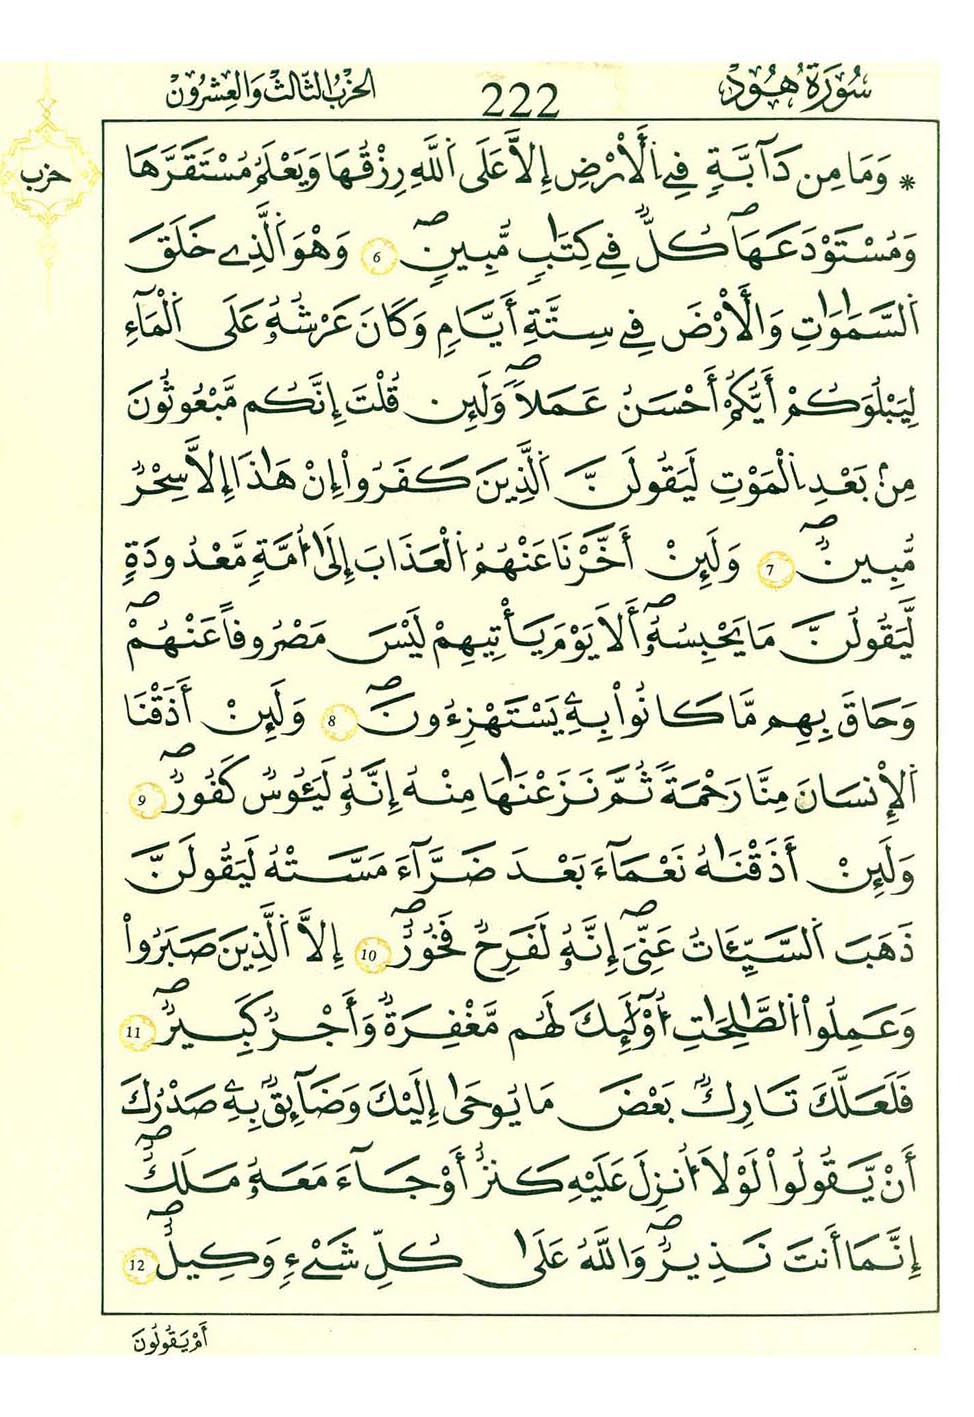 سُورَةُ هُودٍ
222
الحِزْبُ الثَّالِثُ وَالعِشْرُونَ
حزب
* وَمَا مِن دَآبَّةٍ فِے اِ۬لَارْضِ إِلَّا عَلَى اَ۬للَّهِ رِزْقُهَا وَيَعْلَمُ مُسْتَقَرَّهَا
وَمُسْتَوْدَعَهَاۖ كُلّٞ فِے كِتَٰبٖ مُّبِينٖۖ 6 وَهْوَ اَ۬لَّذِے خَلَقَ
اَ۬لسَّمَٰوَٰتِ وَالَارْضَ فِے سِتَّةِ أَيَّامٖ وَكَانَ عَرْشُهُۥ عَلَى اَ۬لْمَآءِ
لِيَبْلُوَكُمْ أَيُّكُمْ أَحْسَنُ عَمَلاٗۖ وَلَئِن قُلْتَ إِنَّكُم مَّبْعُوثُونَ
مِنۢ بَعْدِ اِ۬لْمَوْتِ لَيَقُولَنَّ اَ۬لذِينَ كَفَرُوٓاْ إِنْ هَٰذَا إِلَّا سِحْرٞ
مُّبِينٞۖ 7 وَلَئِنْ أَخَّرْنَا عَنْهُمُ اُ۬لْعَذَابَ إِلَىٰٓ أُمَّةٖ مَّعْدُودَةٖ
لَّيَقُولُنَّ مَا يَحْبِسُهُۥۖ أَلَا يَوْمَ يَأْتِيهِمْ لَيْسَ مَصْرُوفاً عَنْهُمْۖ
وَحَاقَ بِهِم مَّا كَانُواْ بِهِۦ يَسْتَهْزِءُونَۖ 8 وَلَئِنْ أَذَقْنَا
اَ۬لْإِنسَانَ مِنَّا رَحْمَةٗ ثُمَّ نَزَعْنَٰهَا مِنْهُ إِنَّهُۥ لَيَـُٔوسٞ كَفُورٞۖ 9
وَلَئِنْ أَذَقْنَٰهُ نَعْمَآءَ بَعْدَ ضَرَّآءَ مَسَّتْهُ لَيَقُولَنَّ
ذَهَبَ اَ۬لسَّيِّـَٔاتُ عَنِّىۖ إِنَّهُۥ لَفَرِحٞ فَخُورٌۖ 10 إِلَّا اَ۬لَّذِينَ صَبَرُواْ
وَعَمِلُواْ اُ۬لصَّٰلِحَٰتِ أُوْلَٰٓئِكَ لَهُم مَّغْفِرَةٞ وَأَجْرٞ كَبِيرٞۖ 11
فَلَعَلَّكَ تَارِكُۢ بَعْضَ مَا يُوحَىٰٓ إِلَيْكَ وَضَآئِقُۢ بِهِۦ صَدْرُكَ
أَنْ يَّقُولُواْ لَوْلَآ أُنزِلَ عَلَيْهِ كَنزٌ أَوْ جَآءَ مَعَهُۥ مَلَكٌۖ
إِنَّمَا أَنتَ نَذِيرٞۖ وَاللَّهُ عَلَىٰ كُلِّ شَےْءٖ وَكِيلٌۖ 12
أَمْ يَقُولُونَ